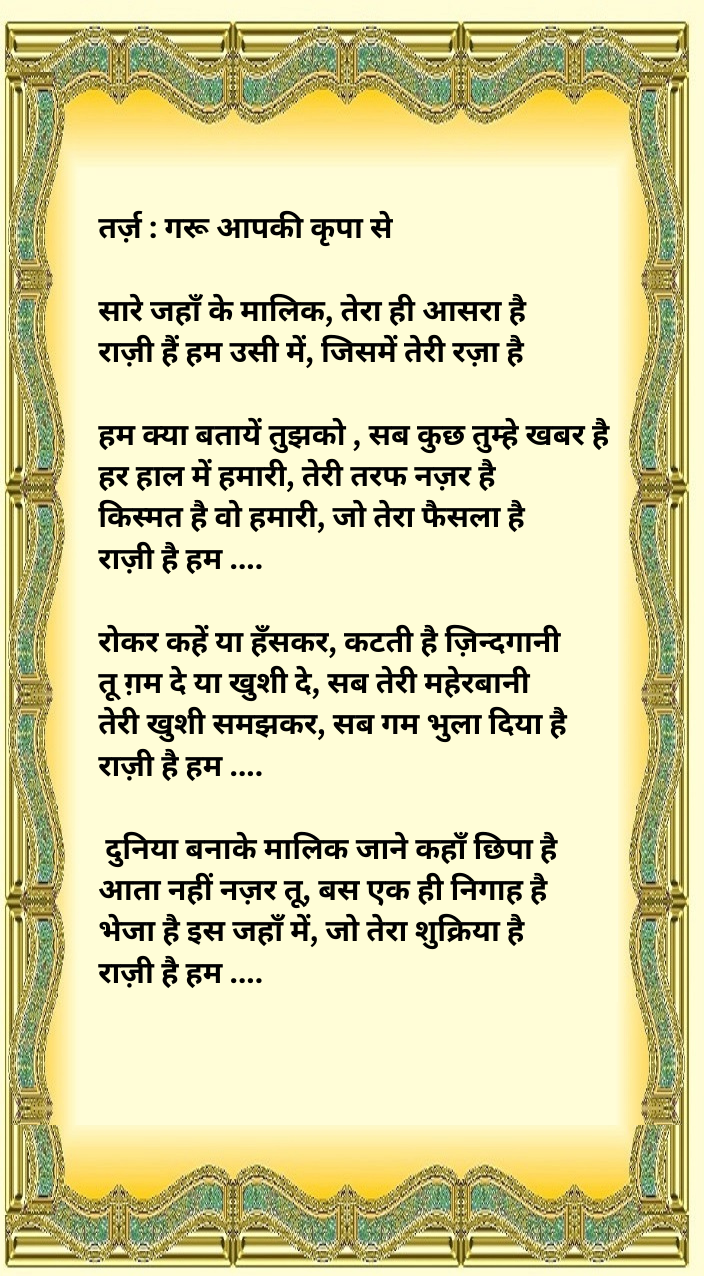 तर्ज़ : गरू आपकी कृपा से
सारे जहाँ के मालिक, तेरा ही आसरा है
राज़ी हैं हम उसी में, जिसमें तेरी रज़ा है
हम क्या बतायें तुझको , सब कुछ तुम्हे खबर है
हर हाल में हमारी, तेरी तरफ नज़र है
किस्मत है वो हमारी, जो तेरा फैसला है
राज़ी है हम ....
रोकर कहें या हँसकर, कटती है ज़िन्दगानी
तू ग़म दे या खुशी दे, सब तेरी महेरबानी
तेरी खुशी समझकर, सब गम भुला दिया है
राज़ी है हम ....
दुनिया बनाके मालिक जाने कहाँ छिपा है
आता नहीं नज़र तू, बस एक ही निगाह है
भेजा है इस जहाँ में, जो तेरा शुक्रिया है
राज़ी है हम ....